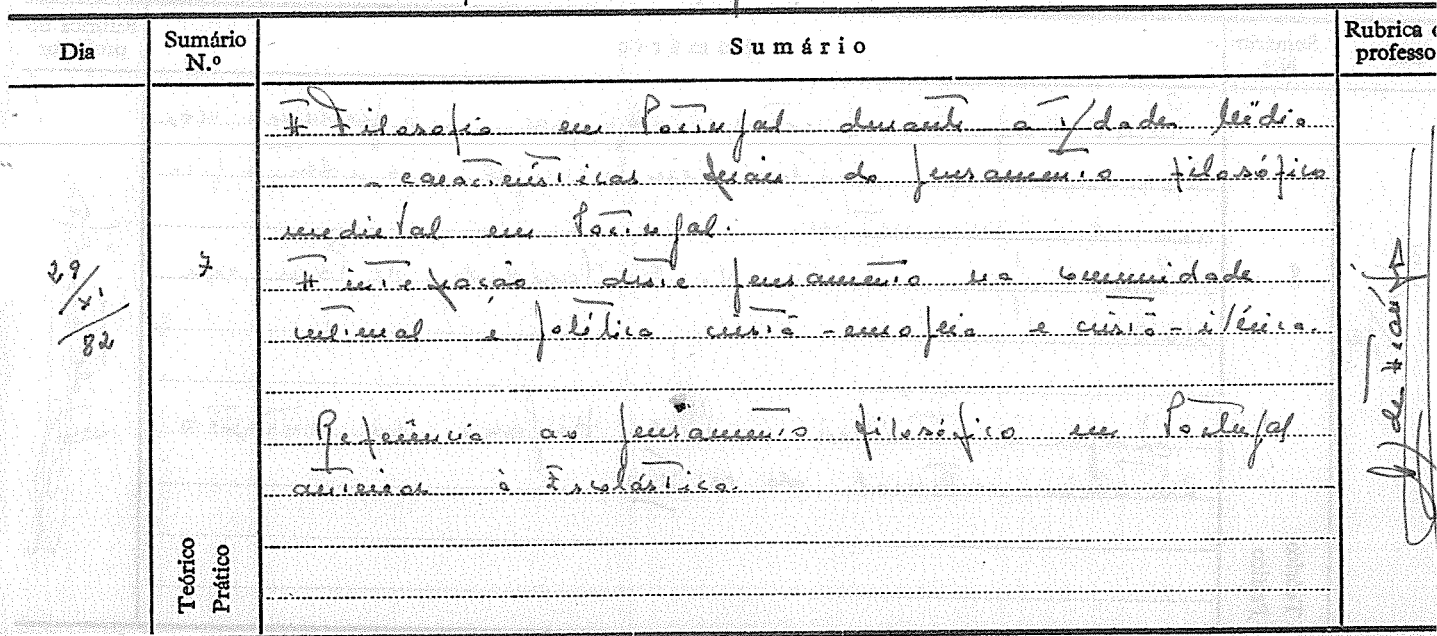 Dia
Sumário N.º
Sumário
Rubrica d
professo
A Filosofia em Portugal durante a Idade Média
- características gerais do pensamento filosófico
medieval em Portugal.
29/XI/82
7
A integração deste pensamento na comunidade
cultural e política cristã-europeia e cristã-ibérica.
Referência ao pensamento filosófico em Portugal
anterior à Escolástica.
Teórico
Prático